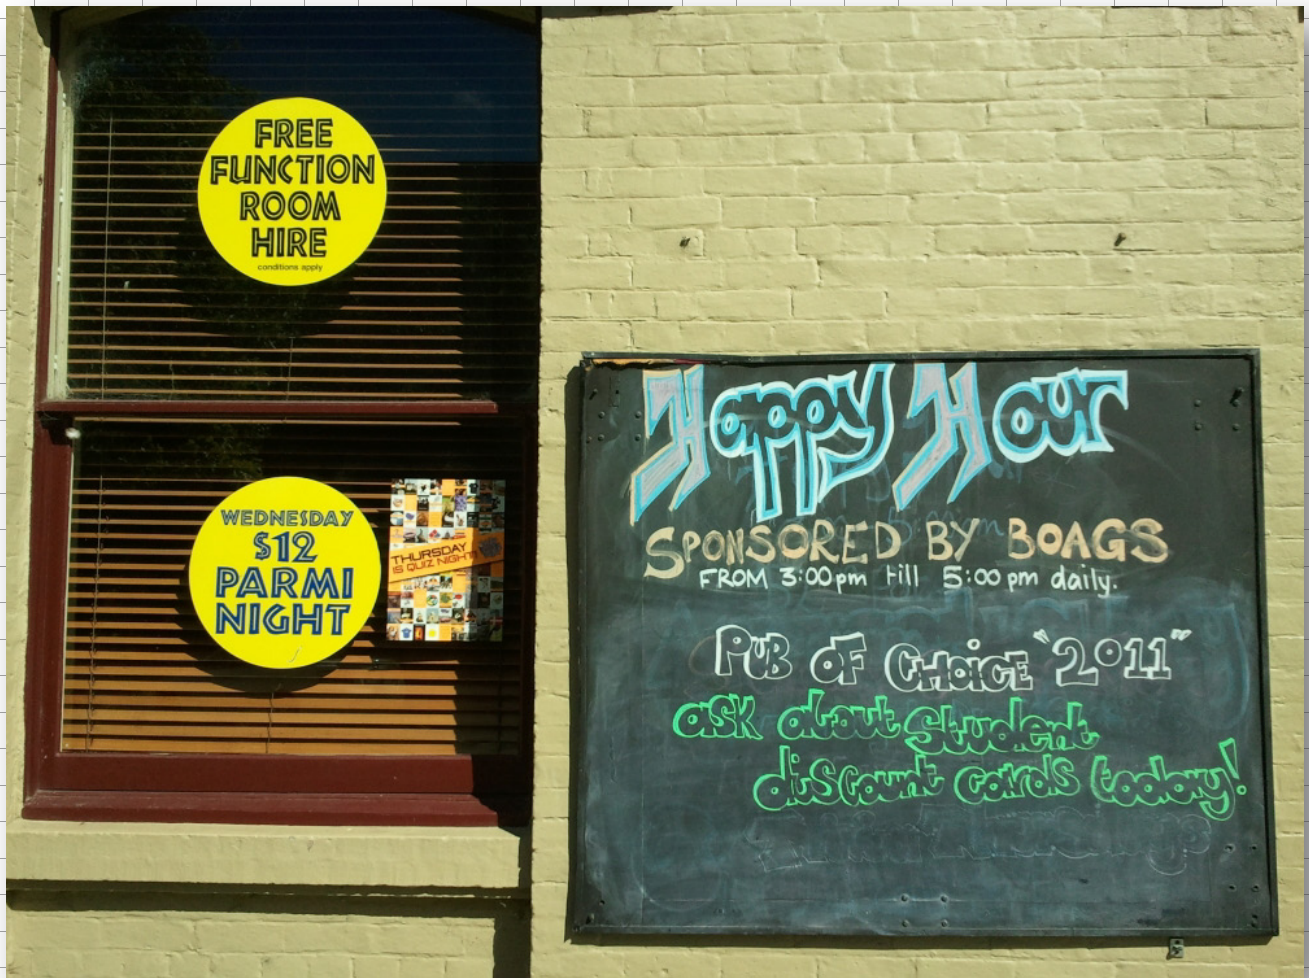 FREE
FUNCTION
ROOM
HIRE
conditions apply
WEDNESDAY
$12
PARMI
NIGHT
THURSDAY
IS QUIZ NIGHT!
Happy Hour
SPONSORED BY BOAGS
FROM 3:00pm till 5:00pm daily.
PUB OF CHOICE "2011"
ask about student
discount cards today!